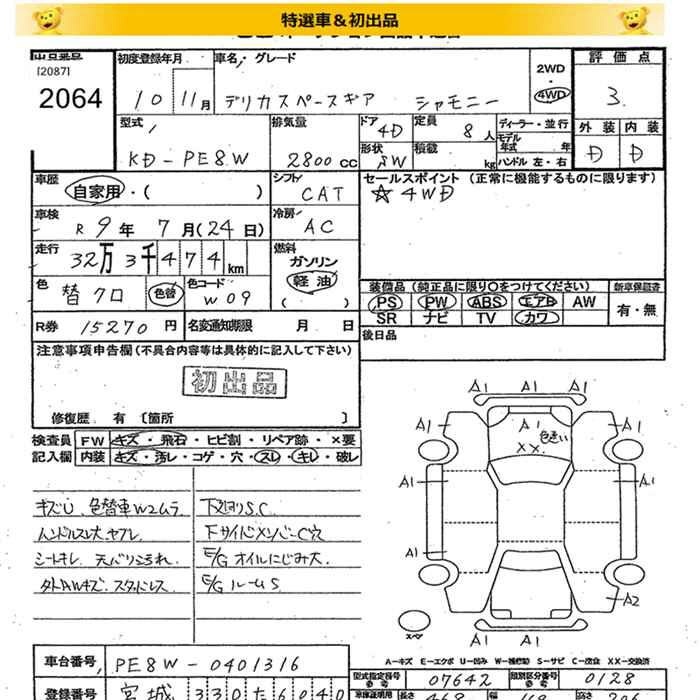 特選車＆初出品
出品番号
[2087]
2064
初度登録年月
10 11月
車名・グレード
デリカスペースギア シャモニー
2WD
・
4WD
評価点
3.
外装 内装
D D
型式
KD-PE8W
排気量
2800cc
ドア
4D
形状
SW
定員
8人
積載
kg
ディーラー・並行
モデル年式 年
ハンドル 左・右
車歴
自家用・( )
シフト
CAT
セールスポイント (正常に機能するものに限ります)
☆4WD
車検
R 9年 7月(24日)
冷房
AC
走行
32万3千474km
燃料
ガソリン
軽油
( )
色
替クロ
色替
色コード
W09
装備品 (純正品に限り○をつけてください)
PS PW ABS エアB AW
SR ナビ TV カワ
新車保証書
有・無
R券 15270円
名変通知期限 月 日
後日品
注意事項申告欄(不具合内容等は具体的に記入して下さい)
初出品
修復歴 有 〔箇所 〕
検査員記入欄
FW キズ・飛石・ヒビ割・リペア跡・×要
内装 キズ・汚レ・コゲ・穴・スレ・キレ・破レ
キズU、色替車W2ムラ
ハンドルスレ大 ヤブレ
シートキレ
タトAWキズ、スタッドレス
下廻りS.C
下サイドメンバーC穴
E/G オイルにじみ大
E/G ルームS
A1 A1 A1
A1 A1 A1
色ちがい
XX
A1 A1
A1
A2
A1 A1
スペア
A-キズ E-エクボ U-凹み W-補修跡 S-サビ C-腐食 XX-交換済
車台番号 PE8W-0401316
型式指定番号 07642
類別区分番号 0128
登録番号 宮城 330 た 6040
車庫証明用
長さ 468
幅
高さ 206